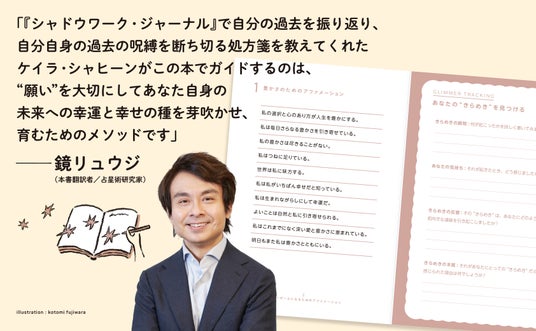 「『シャドウワーク・ジャーナル』で自分の過去を振り返り、
自分自身の過去の呪縛を断ち切る処方箋を教えてくれた
ケイラ・シャヒーンがこの本でガイドするのは、
“願い”を大切にしてあなた自身の
未来への幸運と幸せの種を芽吹かせ、
育むためのメソッドです」
鏡リュウジ
（本書翻訳者／占星術研究家）
illustration : kotomi fujiwara
1 豊かさのためのアファメーション
私の選択と心のあり方が人生を豊かにする。
私は毎日さらなる豊かさを引き寄せている。
私の豊かさは尽きることがない。
私はつねに足りている。
世界は私に味方する。
私は私がいちばん幸せだと知っている。
私は生まれながらにして幸運だ。
よいことは自然と私に引き寄せられる。
私はこれまでになく深い愛と豊かさに恵まれている。
明日もまた私は豊かさとともにいる。
GLIMMER TRACKING
あなたの“きらめき”を見つける
きらめきの瞬間：
あなたの気持ち：
きらめきの先端：
きらめきの本質：